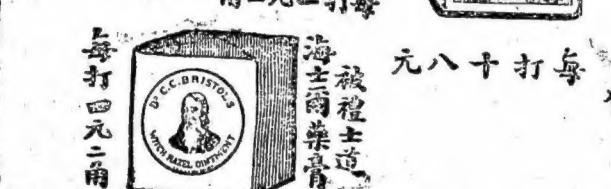 每打十八元
被禮士道
海士爾藥膏
DR C.C. BRISTOL'S
WITCH HAZEL OINTMENT
每打四元二角